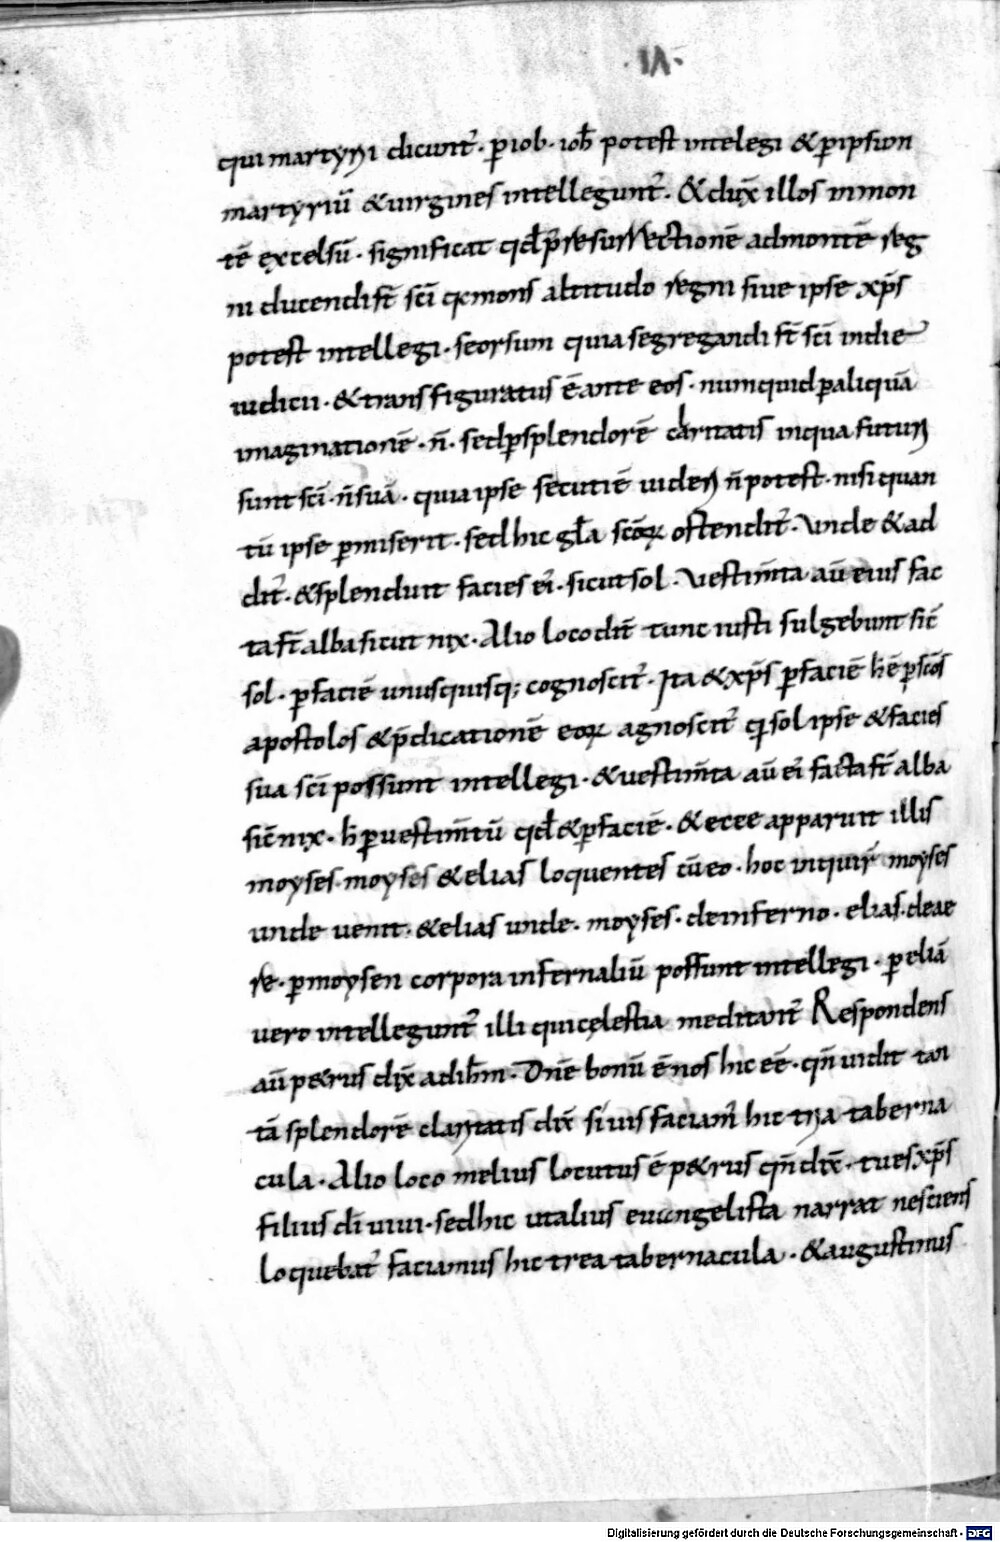 ·IΛ·
qui martyri dicunt̃· ꝑ iob· iob̃ potest intelegi & ꝑ ipsum
martyriũ & uirgines intellegunt̃· & dux̃ illos in mon
tẽ excelsũ· significat qđ p̃ resurrectionẽ ad montẽ reg
ni ducendi st̃ sc̃i q mons altitudo regni siue ipse xp̃s
potest intellegi· seorsum quia segregandi st̃ sc̃i in die
iudicii· & transfiguratus ẽ ante eos· numquid ꝑ aliquã
imaginationẽ· ñ· sed ꝑ splendorẽ claritatis in qua futuri
sunt sc̃i· ñ suã· quia ipse secutiẽ uideri ñ potest· nisi quan
tũ ipse ꝑmiserit· sed hic gl̃a sc̃oꝝ ostendit̃· Unde & ad
dit̃· & splenduit facies ei᷒· sicut sol· Uestim̃ta aũ eius fac
ta st̃ alba sicut nix· Alio loco dĩt tunc iusti fulgebunt sic̃
sol· ꝑ faciẽ unusquisq; cognoscit̃· Ita & xp̃s ꝑ faciẽ h̃ ẽ ꝑ sc̃os
apostolos & p̃dicationẽ eoꝝ agnoscit̃ q sol ipse & facies
sua sc̃i possunt intellegi· & uestim̃ta aũ ei᷒ facta st̃ alba
sic̃ nix· h̃ ꝑ uestim̃tũ qđ & ꝑ faciẽ· & ecce apparuit illis
moyses· moyses & elias loquentes cũ eo· hoc inquir̃ moyses
unde uenit· & elias unde· moyses· de inferno· elias· de ae
re· ꝑ moysen corpora infernaliũ possunt intellegi· ꝑ eliã
uero intellegunt̃ illi qui cęlestia meditant̃ Respondens
aũ p&rus dix̃ ad ih̃m· Dñe bonũ ẽ nos hic eẽ· qñ uidit tan
tã splendorẽ claritatis dix̃ si uis faciam᷒ hic tria taberna
cula· Alio loco melius locutus ẽ p&rus qñ dix̃· tu es xp̃s
filius dĩ uiui· sed hic ut alius euangelista narrat nesciens
loquebat̃ faciamus hic trea tabernacula· & augustinus
Digitalisierung gefördert durch die Deutsche Forschungsgemeinschaft - DFG